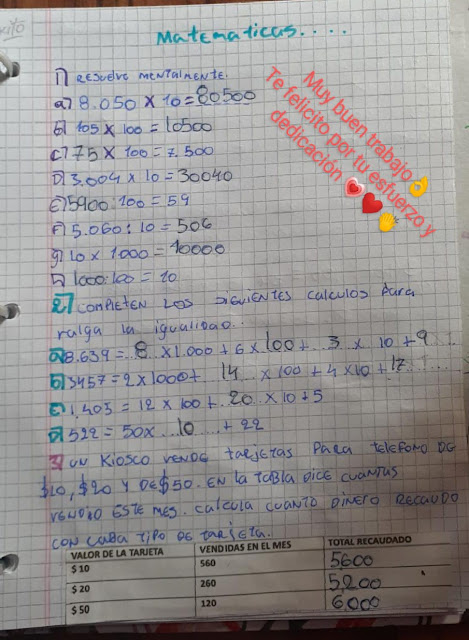 Matematicas....
1) RESUELVE MENTALMENTE.
a) 8.050 x 10 = 80500
b) 105 x 100 = 10500
c) 75 x 100 = 7.500
D) 3.004 x 10 = 30040
E) 5900:100 = 59
F) 5.060:10 = 506
g) 10 x 1000 = 10000
h) 1000:100 = 10
Muy buen trabajo👌
Te felicito por tu esfuerzo y
dedicación 💖❤️👏
2) COMPLETEN LOS SIGUIENTES CALCULOS PARA
valga la igualdad..
a) 8.639 = 8 x 1.000 + 6 x 100 + 3 x 10 + 9
b) 3457 = 2 x 1000 + 14 x 100 + 4 x 10 + 17
c) 1.405 = 12 x 100 + 20 x 10 + 5
D) 522 = 50 x 10 + 22
3) UN KIOSCO VENDE tarjetas para TELEFONO DE
$10, $20 Y DE $50. EN LA TABLA DICE CUANTAS
VENDIO ESTE MES. CALCULA CUANTO DINERO RECAUDO
CON CADA TIPO DE TARJETA.
VALOR DE LA TARJETA VENDIDAS EN EL MES TOTAL RECAUDADO
$ 10 560 5600
$ 20 260 5,200
$ 50 120 6000